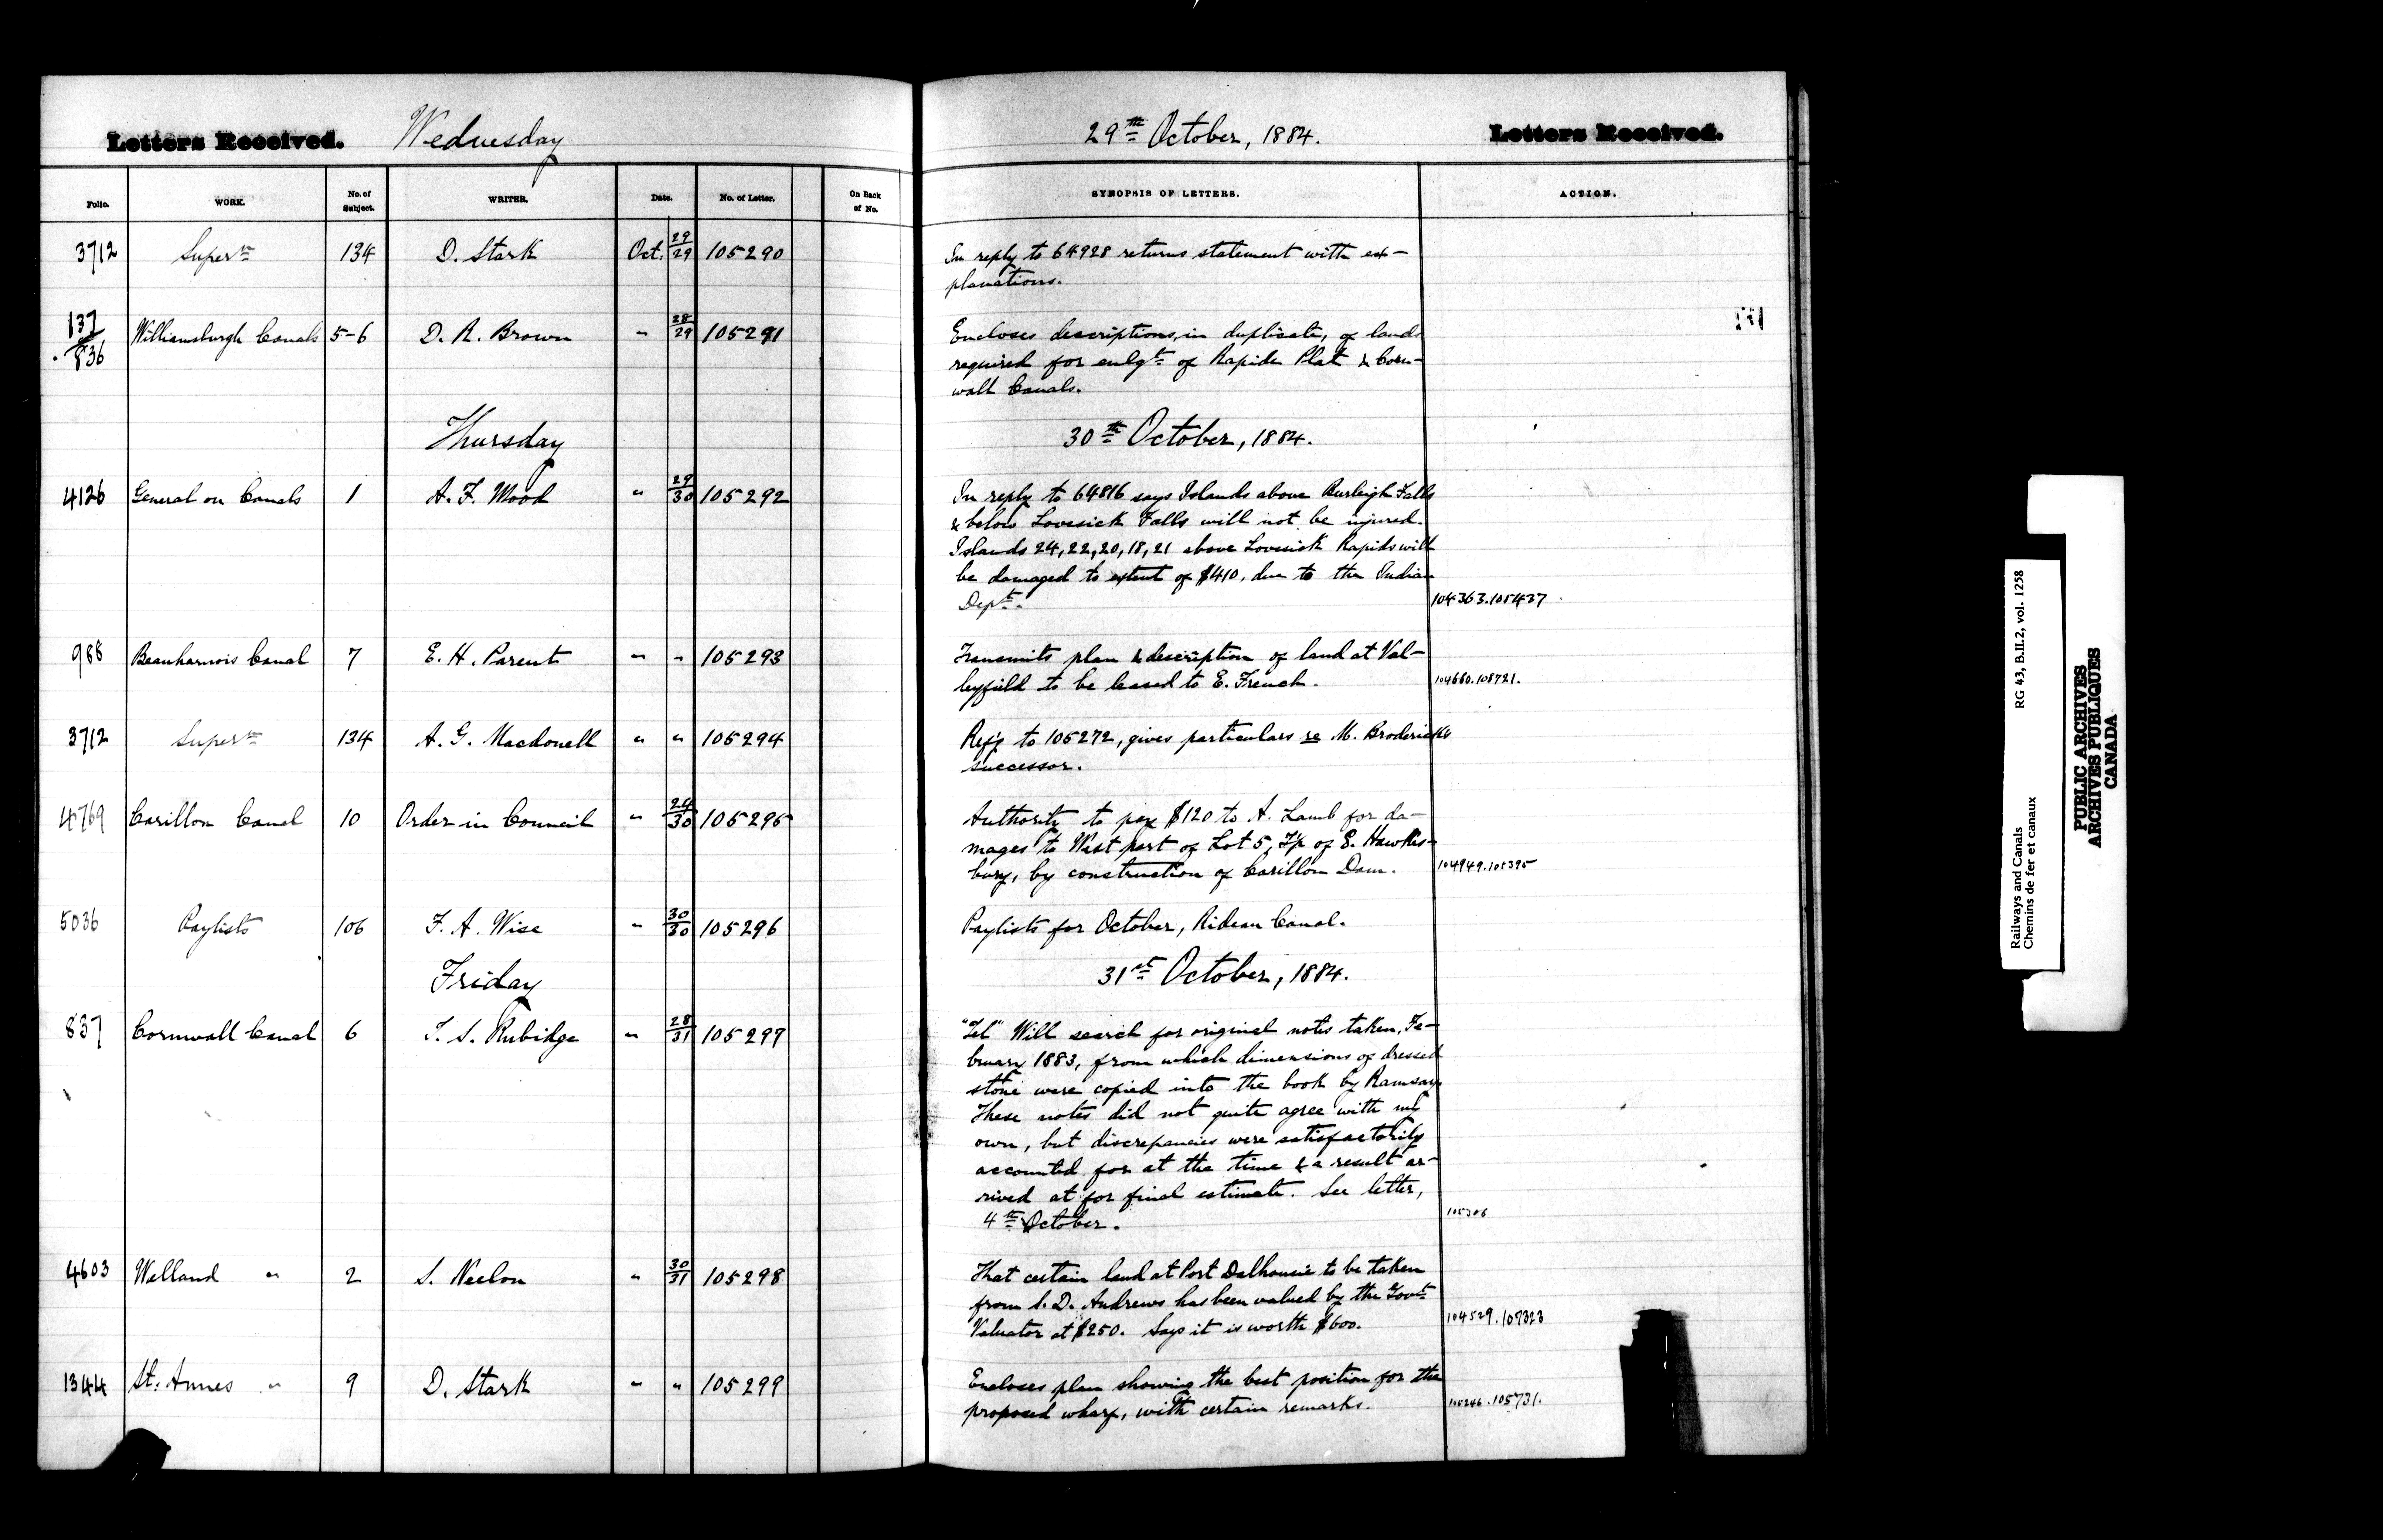 Letters Received. Wednesday 29th October, 1884. Letters Received.
Folio. WORK. No. of Subject. WRITER. Date. No. of Letter. On Back of No. SYNOPSIS OF LETTERS. ACTION.
3712 Supern 134 D. Stark Oct. 29/29 105290 In reply to 64928 returns statement with ex-
planations.
137/836 Williamsburgh Canals 5-6 D. R. Brown " 28/29 105291 Encloses descriptions, in duplicate, of lands
required for enlgt of Rapide Plat & Corn-
wall Canals.
Thursday 30th October, 1884.
4126 General on Canals 1 A. F. Wood " 29/30 105292 In reply to 64816 says Islands above Burleigh Falls
& below Lovesick Falls will not be injured.
Islands 24, 22, 20, 18, 21 above Lovesick Rapids will
be damaged to extent of $410, due to the Indian
Dept. 104363.105437
988 Beauharnois Canal 7 E. H. Parent " " 105293 Transmits plan & description of land at Val-
leyfield to be leased to E. French. 104660.108721.
3712 Supern 134 A. G. Macdonell " " 105294 Ref'g to 105272, gives particulars re M. Broderick's
successor.
4769 Carillon Canal 10 Order in Council " 24/30 105295 Authority to pay $120 to A. Lamb for da-
mages to West part of Lot 5, T'p of E. Hawkes-
bury, by construction of Carillon Dam. 104949.105395
5036 Paylists 106 F. A. Wise " 30/30 105296 Paylists for October, Rideau Canal.
Friday 31st October, 1884.
837 Cornwall Canal 6 T. S. Rubidge " 28/31 105297 "Tel" Will search for original notes taken, Fe-
bruary 1883, from which dimensions of dressed
stone were copied into the book by Ramsay.
These notes did not quite agree with my
own, but discrepancies were satisfactorily
accounted for at the time & a result ar-
rived at for final estimate. See letter,
4th October. 105306
4603 Welland " 2 S. Neelon " 30/31 105298 That certain land at Port Dalhousie to be taken
from S. D. Andrews has been valued by the Govt
Valuator at $250. Says it is worth $600. 104529.107323
1344 St. Annes " 9 D. Stark " " 105299 Encloses plan showing the best position for the
proposed wharf, with certain remarks. 105246.105731.
Railways and Canals RG 43, B.II.2, vol. 1258
Chemins de fer et canaux
PUBLIC ARCHIVES
ARCHIVES PUBLIQUES
CANADA